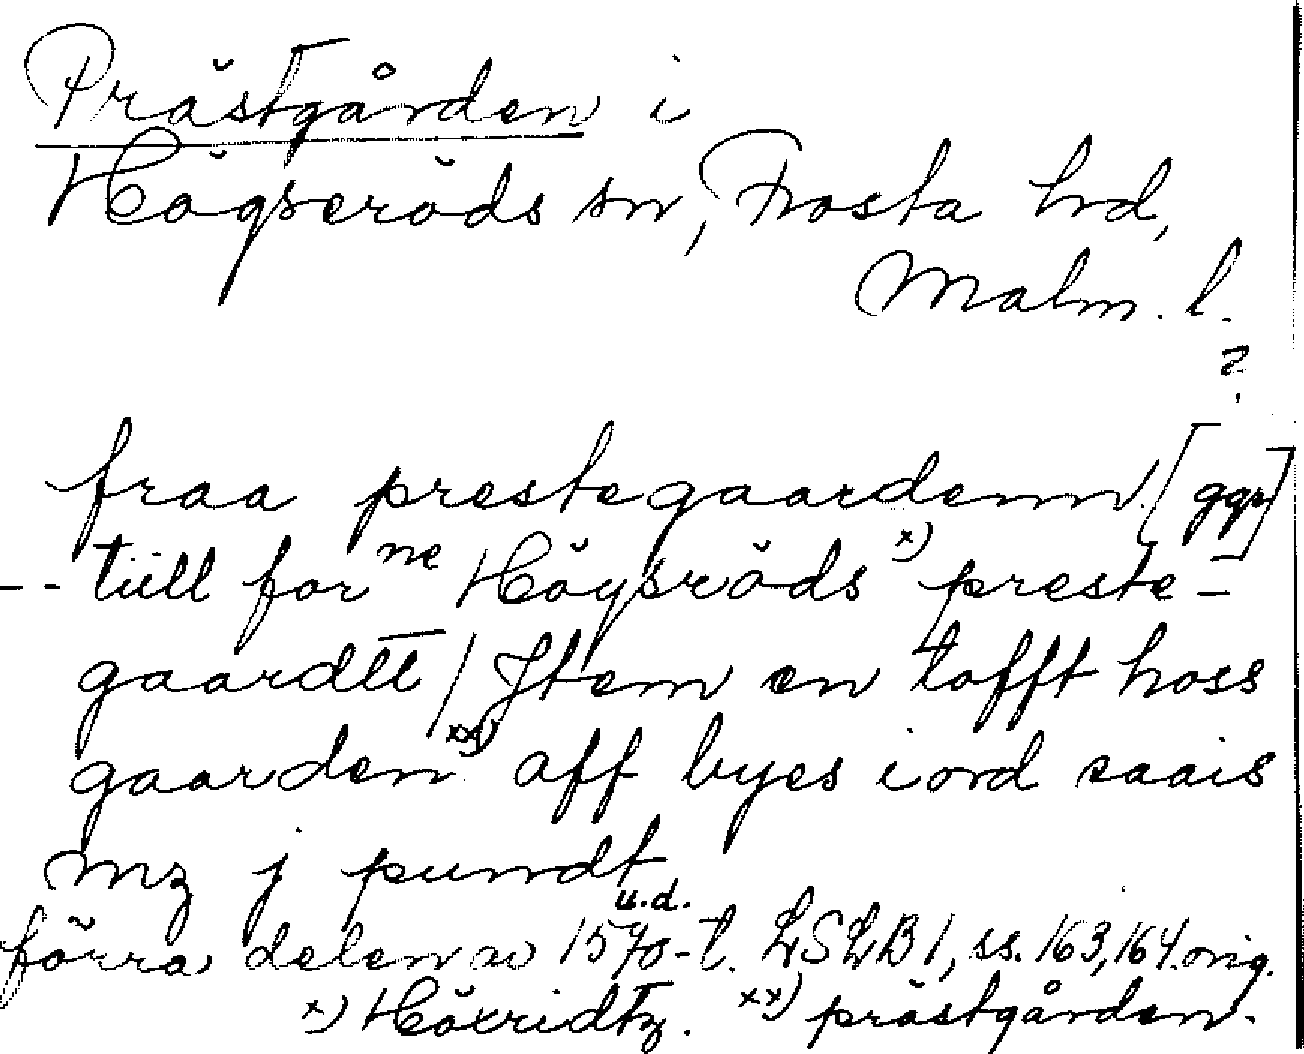 Prästgården i
Högseröds sn, Frosta hd,
Malm. l.
?
fraa prestegaardenn [ggr]
-- till for ne Höysröds x) preste-
gaardtt / Jtem en tofft hoss
gaarden xx) aff byes iord saais
mz j pundt
u.d.
förra delen av 1570-t. LSLB 1, ss. 163, 164. orig.
x) Höxridtz. xx) prästgården.